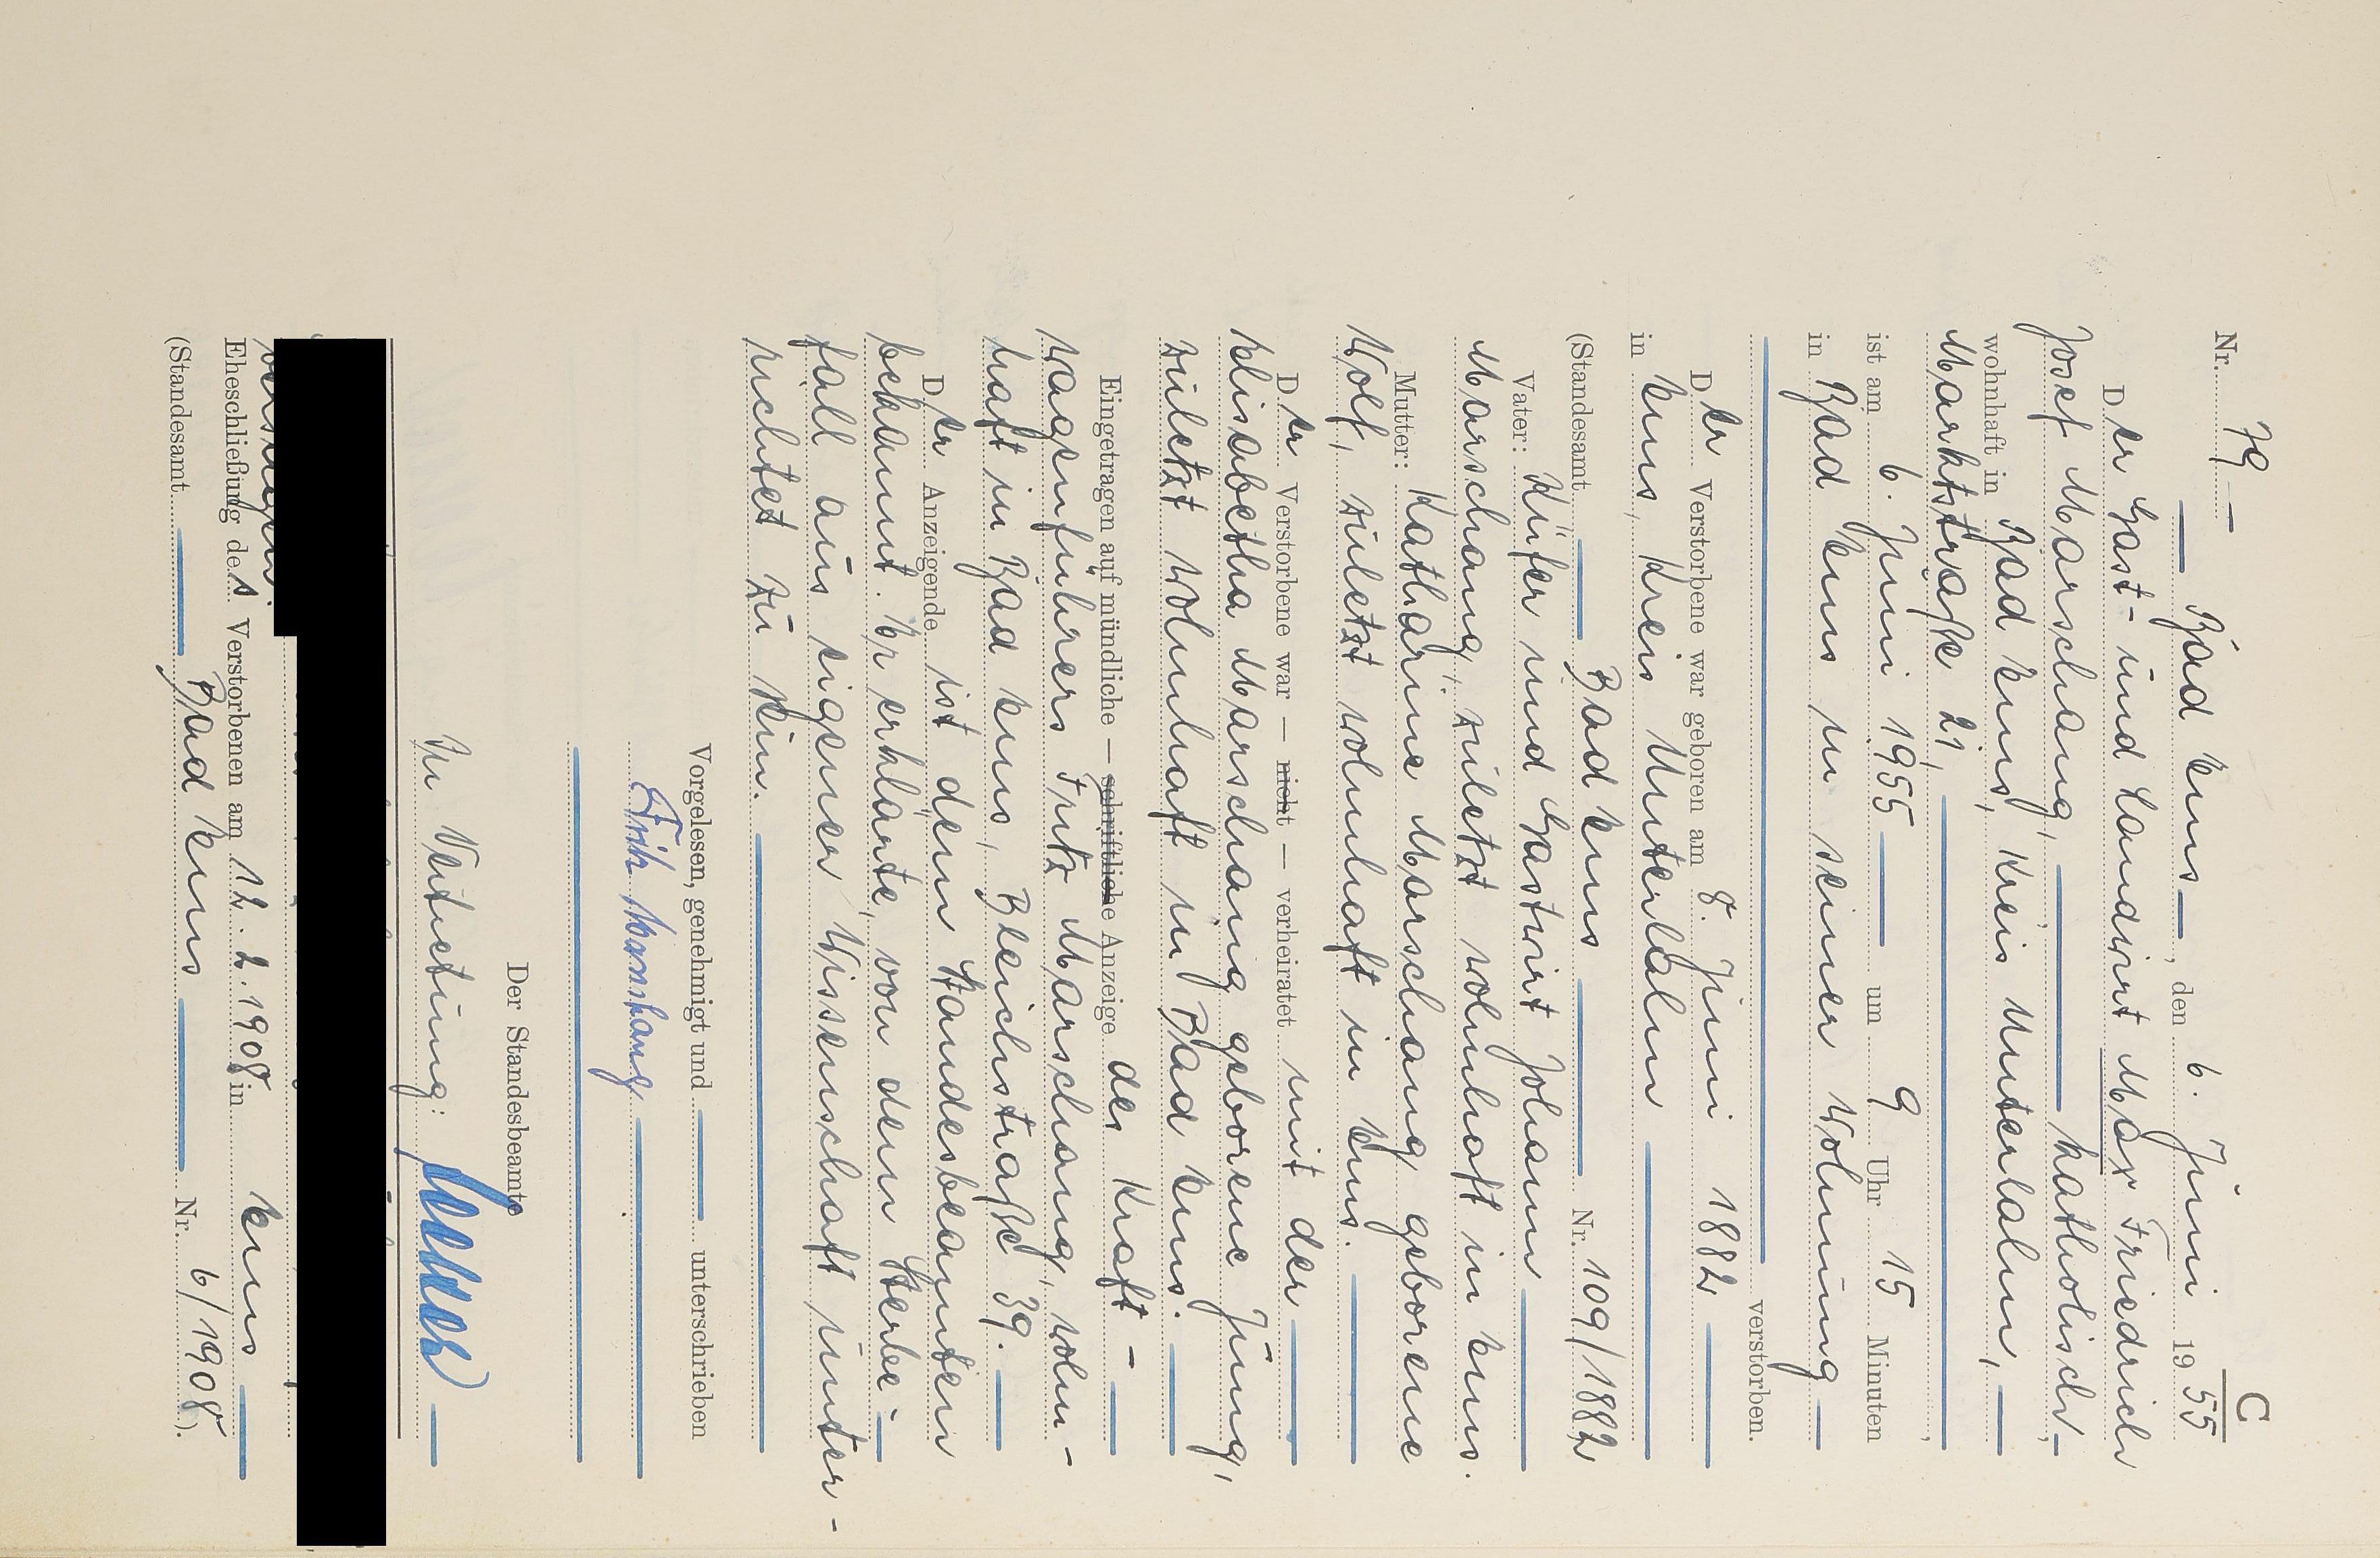 C
Nr. 79 —
Bad Ems —, den 6. Juni 1955
Der Gast- und Landwirt Max Friedrich
Josef Marschang, — katholisch —,
wohnhaft in Bad Ems, Kreis Unterlahn, —
Marktstraße 21, — ,
ist am 6. Juni 1955 — um 9 Uhr 15 Minuten
in Bad Ems in seiner Wohnung —
— verstorben.
Der Verstorbene war geboren am 8. Juni 1882 —
in Ems, Kreis Unterlahn —
(Standesamt — Bad Ems — Nr. 109/1882
Vater: Küfer und Gastwirt Johann —
Marschang, zuletzt wohnhaft in Ems.
Mutter: Katharine Marschang geborene
Wolf, zuletzt wohnhaft in Ems. —
Der Verstorbene war — nicht — verheiratet mit der —
Elisabetha Marschang geborene Jung,
zuletzt wohnhaft in Bad Ems. —
Eingetragen auf mündliche — schriftliche Anzeige des Kraft- —
wagenführers Fritz Marschang, wohn-
haft in Bad Ems, Bleichstraße 39. —
Der Anzeigende ist dem Standesbeamten
bekannt. Er erklärte, von dem Sterbe- —
fall aus eigener Wissenschaft unter-
richtet zu sein. —
Vorgelesen, genehmigt und — unterschrieben
Fritz Marschang —
Der Standesbeamte
In Vertretung: —
Eheschließung des Verstorbenen am 12. 2. 1908 in Ems —
(Standesamt — Bad Ems — Nr. 6/1908).